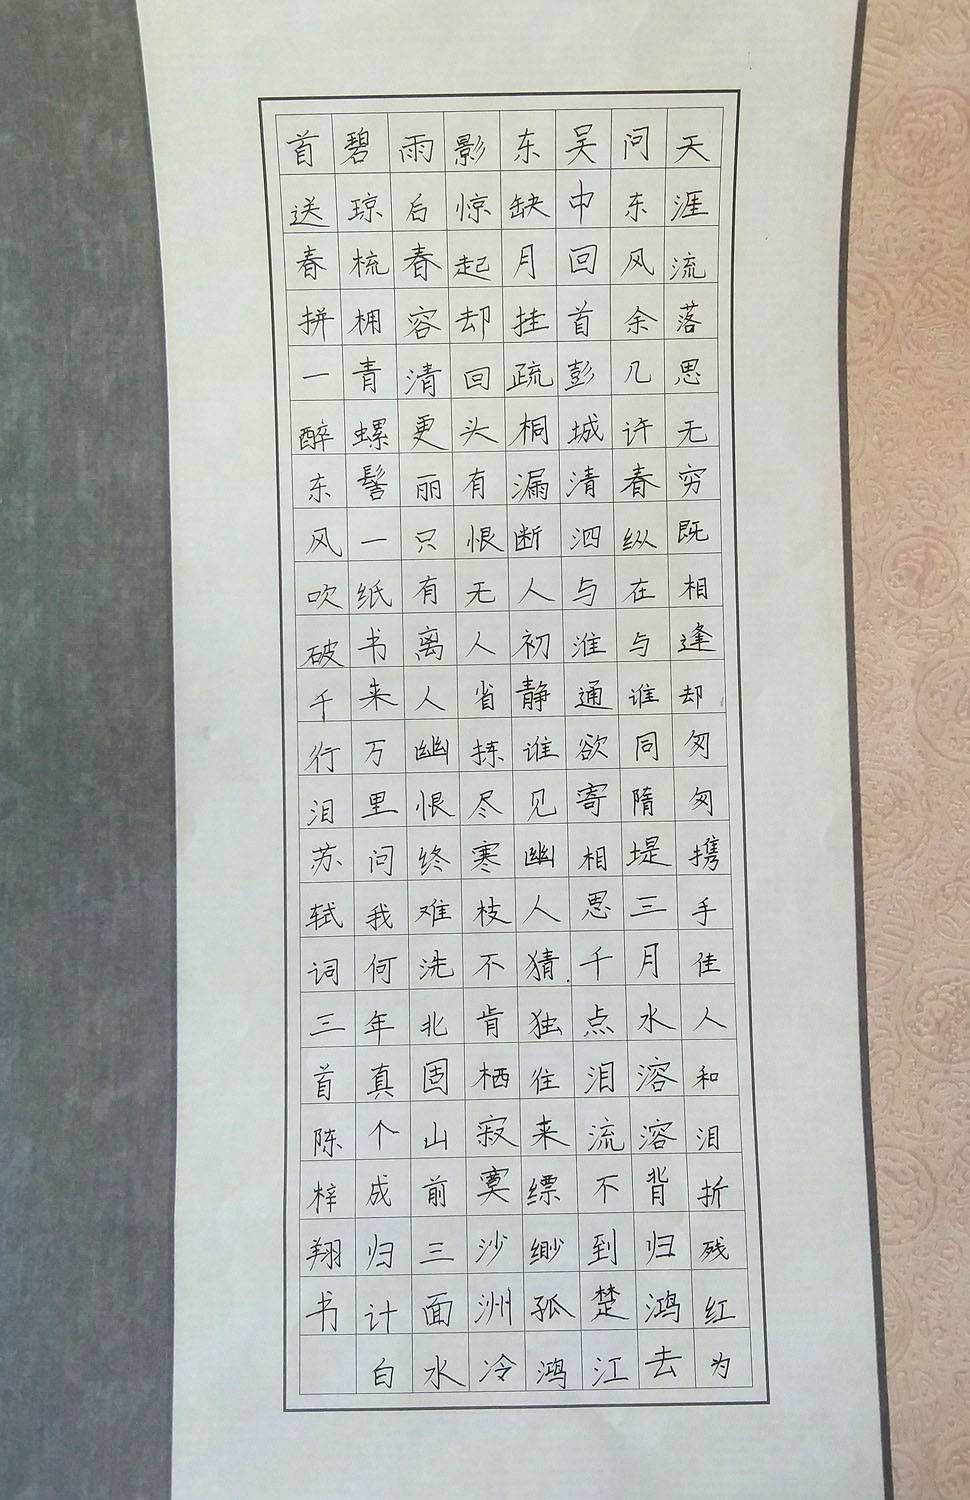 天涯流落思无穷既相逢却匆匆携手佳人和泪折残红为
问东风余几许春纵在与谁同隋堤三月水溶溶背归鸿去
吴中回首彭城清泗与淮通欲寄相思千点泪流不到楚江
东缺月挂疏桐漏断人初静谁见幽人猜独往来缥缈孤鸿
影惊起却回头有恨无人省拣尽寒枝不肯栖寂寞沙洲冷
雨后春容清更丽只有离人幽恨终难洗北固山前三面水
碧琼梳拥青螺髻一纸书来万里问我何年真个成归计白
首送春拼一醉东风吹破千行泪苏轼词三首陈梓翔书